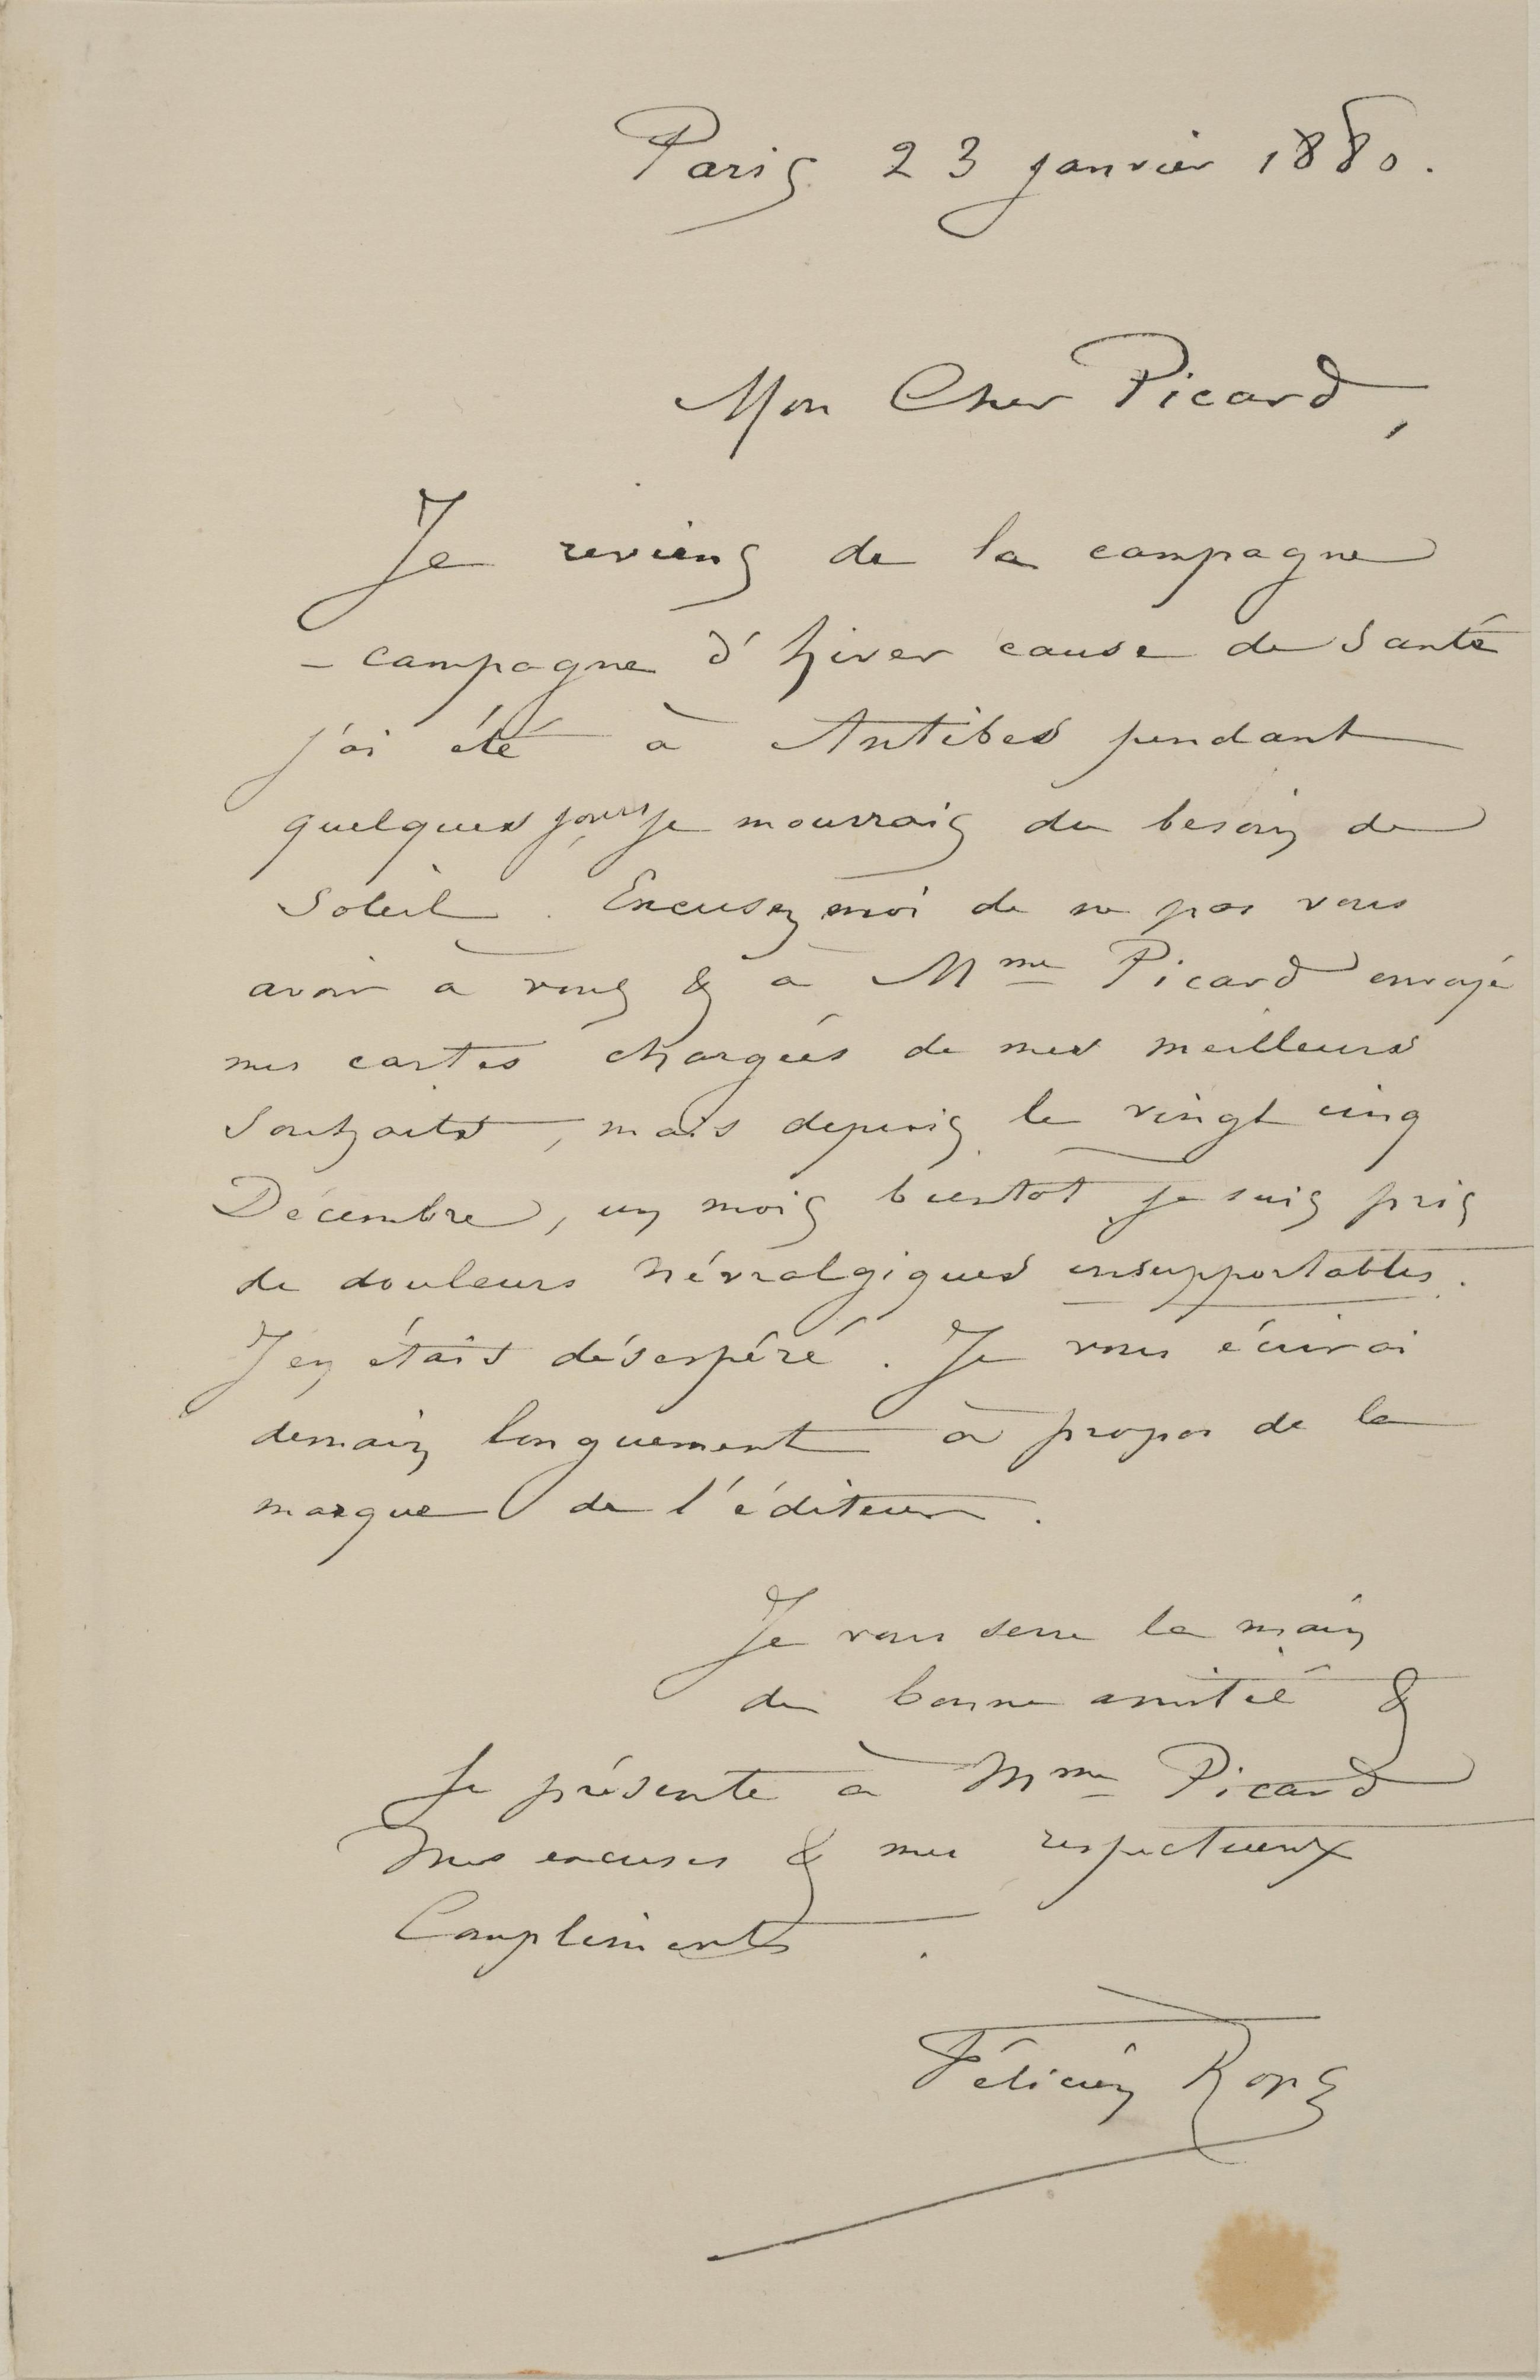 Paris 23 janvier 1880.
Mon Cher Picard,
Je reviens de la campagne
– campagne d'hiver cause de santé
j'ai été à Antibes pendant
quelques jours, je mourrais du besoin de
Soleil. Excusez moi de ne pas vous
avoir à vous & à Mme Picard envoyé
mes cartes chargées de mes meilleurs
Souhaits, mais depuis le vingt cinq
Décembre, un mois bientot, je suis pris
de douleurs névralgiques insupportables.
J'en étais désespéré. Je vous écrirai
demain longuement à propos de la
marque de l'éditeur.
Je vous serre la main
de bonne amitié &
je présente à Mme Picard
mes excuses & mes respectueux
Compliments.
Félicien Rops